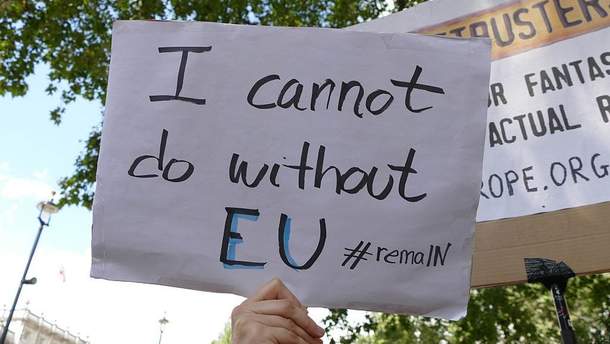 I cannot
do without
EU #remaIN
BUSTER
R FANTAS
ACTUAL R
ROPE.ORG